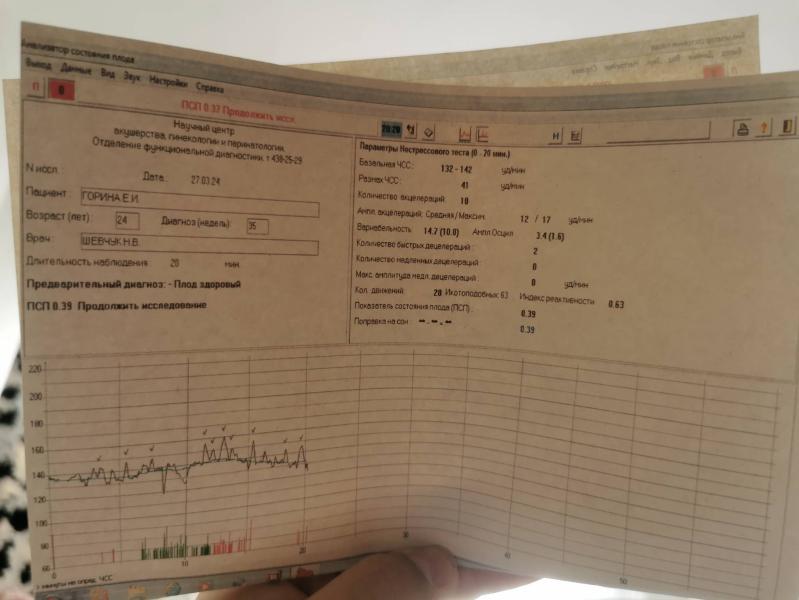 Анализатор состояния плода
Выход Данные Вид Звук Настройки Справка
П 0 ПСП 0.37 Продолжить иссл. 20:20 Н
Научный центр
акушерства, гинекологии и перинатологии.
Отделение функциональной диагностики. т 438-25-29
N иссл :
Дата : 27.03.24
Пациент : ГОРИНА Е.И.
Возраст (лет) : 24 Диагноз (недель): 35
Врач : ШЕВЧУК Н.В.
Длительность наблюдения 20 мин.
Предварительный диагноз: - Плод здоровый
ПСП 0.39 Продолжить исследование
Параметры Нестрессового теста (0 - 20 мин.)
Базальная ЧСС : 132 - 142 уд/мин
Размах ЧСС : 41 уд/мин
Количество акцелераций: 10
Ампл. акцелераций: Средняя/Максим. 12 / 17 уд/мин
Вариабельность: 14.7 (10.0) Ампл Осцил 3.4 (1.6)
Количество быстрых децелераций : 2
Количество медленных децелераций : 0
Макс. амплитуда медл. децелераций : 0 уд/мин
Кол. движений: 20 Икотоподобных 63 Индекс реактивности 0.63
Показатель состояния плода (ПСП) : 0.39
Поправка на сон : -- - -- - -- 0.39
220
200
180
160
140
120
100
80
60
0 10 20 30 40 50
минуты не опред. ЧСС